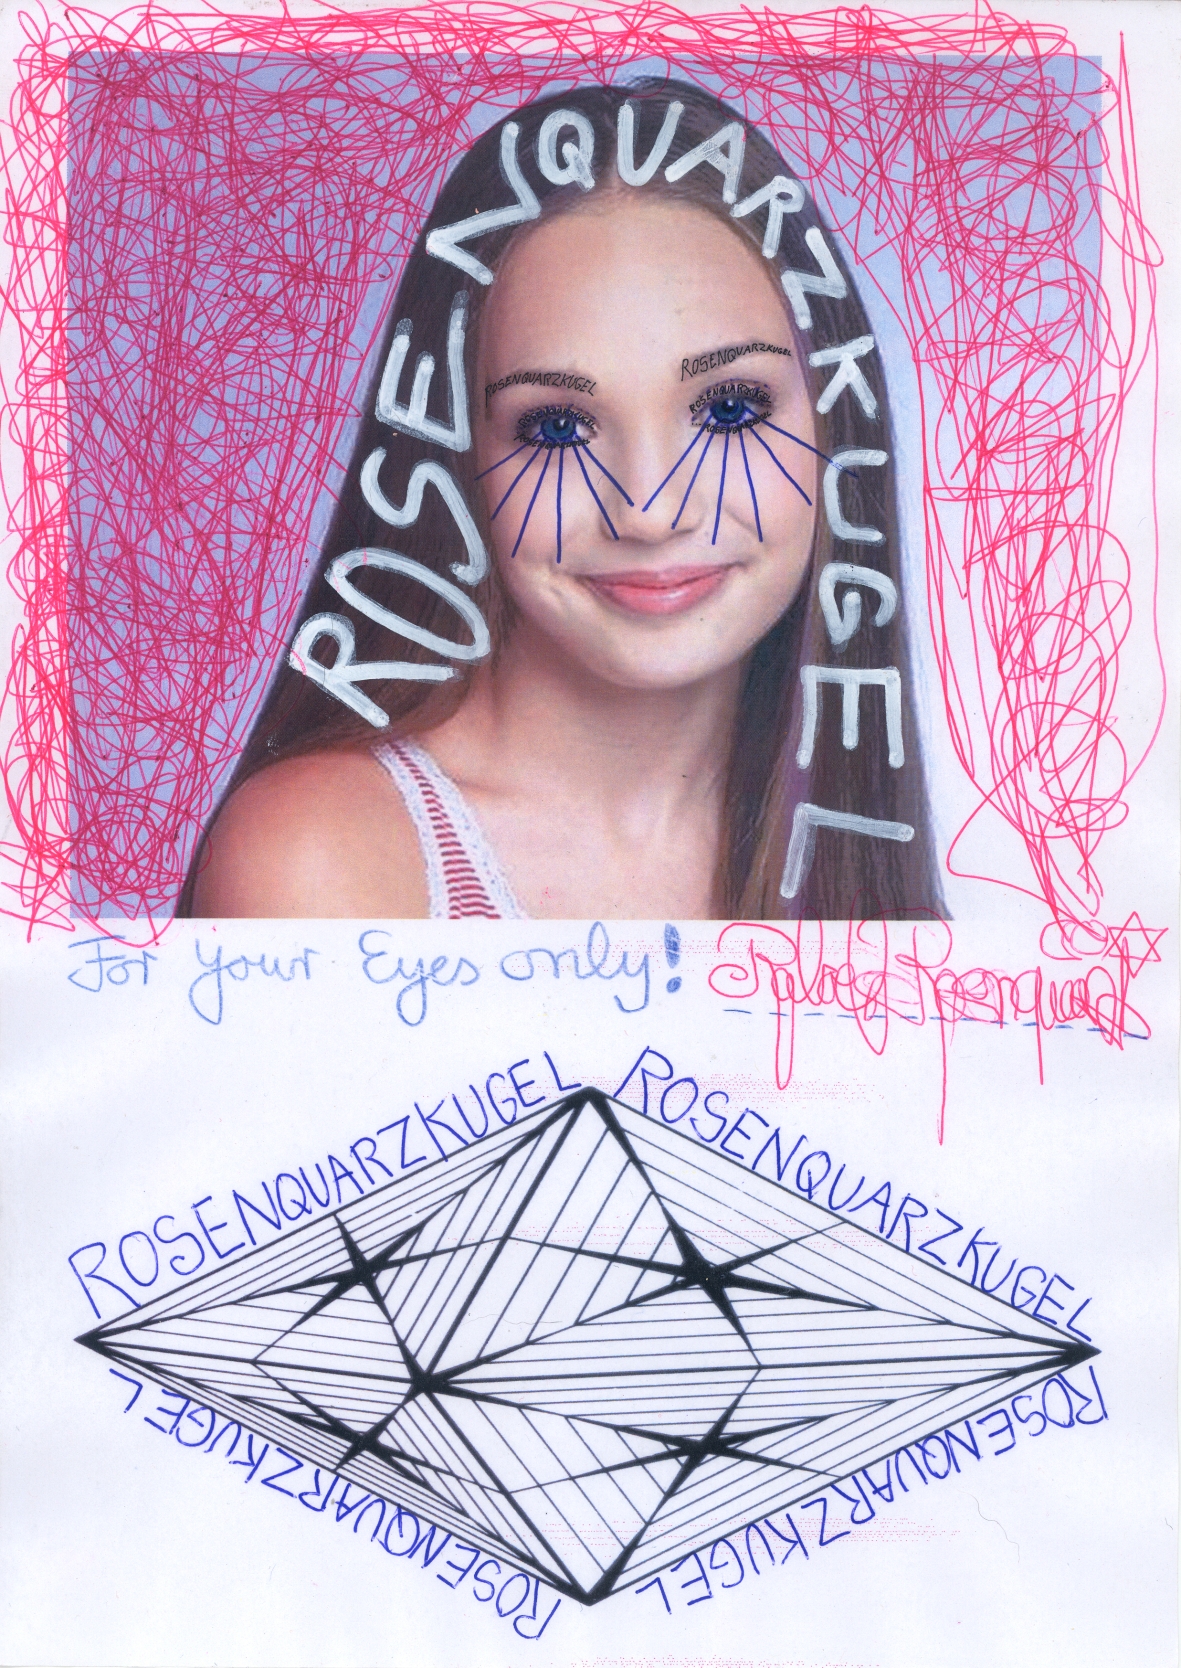 ROSENQUARZKUGEL
ROSENQUARZKUGEL
ROSENQUARZKUGEL
ROSENQUARZKUGEL
ROSENQUARZKUGEL
ROSENQUARZKUGEL
ROSENQUARZKUGEL
For your Eyes only!
ROSENQUARZKUGEL
ROSENQUARZKUGEL
ROSENQUARZKUGEL
ROSENQUARZKUGEL